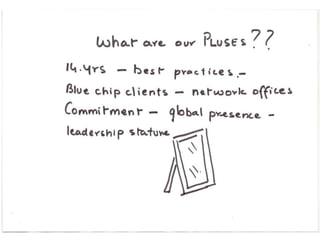 What are our PLUSES??
14.yrs – best practices.–
Blue chip clients – network offices
Commitment – global presence –
leadership stature